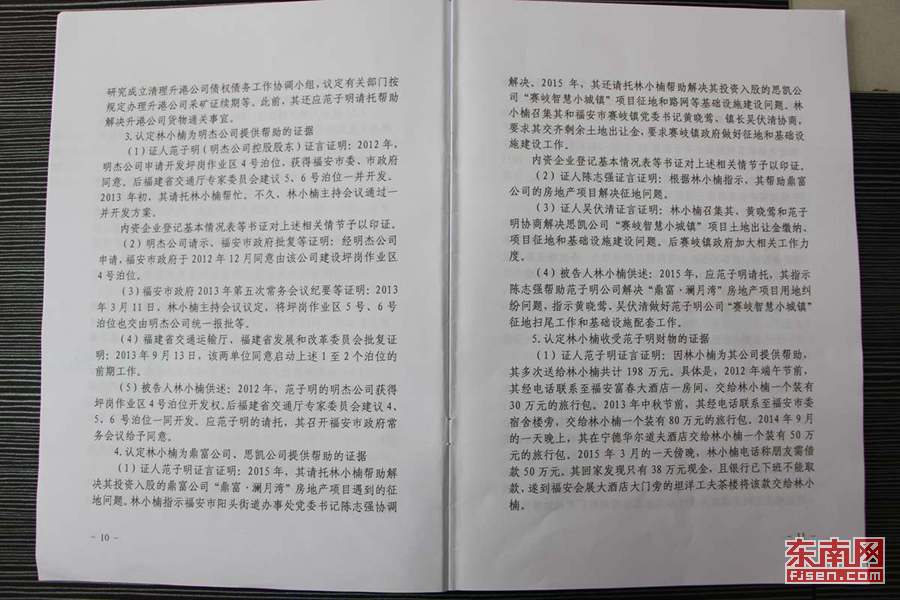 研究成立清理升港公司债权债务工作协调小组，议定有关部门按
规定办理升港公司采矿证续期等。此前，其还应范子明请托帮助
解决升港公司货物通关事宜。
3.认定林小楠为明杰公司提供帮助的证据
（1）证人范子明（明杰公司控股股东）证言证明：2012年，
明杰公司申请开发坪岗作业区4号泊位，获得福安市委、市政府
同意。后福建省交通厅专家委员会建议5、6号泊位一并开发。
2013年初，其请托林小楠帮忙。不久，林小楠主持会议通过一
并开发方案。
内资企业登记基本情况表等书证对上述相关情节予以印证。
（2）明杰公司请示、福安市政府批复等证明：经明杰公司
申请，福安市政府于2012年12月同意由该公司建设坪岗作业区
4号泊位。
（3）福安市政府2013年第五次常务会议纪要等证明：2013
年3月11日，林小楠主持会议议定，将坪岗作业区5号、6号
泊位也交由明杰公司统一报批等。
（4）福建省交通运输厅、福建省发展和改革委员会批复证
明：2013年9月13日，该两单位同意启动上述1至2个泊位的
前期工作。
（5）被告人林小楠供述：2012年，范子明的明杰公司获得
坪岗作业区4号泊位开发权。后福建省交通厅专家委员会建议4、
5、6号泊位一同开发。应范子明的请托，其召开福安市政府常
务会议给予同意。
4.认定林小楠为鼎富公司、思凯公司提供帮助的证据
（1）证人范子明证言证明：2015年，其请托林小楠帮助解
决其投资入股的鼎富公司“鼎富·澜月湾”房地产项目遇到的征
地问题。林小楠指示福安市阳头街道办事处党委书记陈志强协调
- 10 -
解决。2015年，其还请托林小楠帮助解决其投资入股的思凯公
司“赛岐智慧小城镇”项目征地和路网等基础设施建设问题。林
小楠召集其和福安市赛岐镇党委书记黄晓莺、镇长吴伏清协商，
要求其交齐剩余土地出让金，要求赛岐镇政府做好征地和基础设
施建设工作。
内资企业登记基本情况表等书证对上述相关情节予以印证。
（2）证人陈志强证言证明：根据林小楠指示，其帮助鼎富
公司的房地产项目解决征地问题。
（3）证人吴伏清证言证明：林小楠召集其、黄晓莺和范子
明协商解决思凯公司“赛岐智慧小城镇”项目土地出让金缴纳、
项目征地和基础设施建设问题。后赛岐镇政府加大相关工作力
度。
（4）被告人林小楠供述：2015年，应范子明请托，其指示
陈志强帮助范子明公司解决“鼎富·澜月湾”房地产项目用地纠
纷问题，指示黄晓莺、吴伏清做好范子明公司“赛岐智慧小城镇”
征地扫尾工作和基础设施配套工作。
5.认定林小楠收受范子明财物的证据
（1）证人范子明证言证明：因林小楠为其公司提供帮助，
其多次送给林小楠共计198万元。具体是，2012年端午节前，
其经电话联系至福安富春大酒店一房间，交给林小楠一个装有
30万元的旅行包。2013年中秋节前，其经电话联系至福安市委
宿舍楼旁，交给林小楠一个装有80万元的旅行包。2014年9月
的一天晚上，其在宁德华尔道夫酒店交给林小楠一个装有50万
元的旅行包。2015年3月的一天傍晚，林小楠电话称朋友需借
款50万元。其回家发现只有38万元现金，且银行已下班不能取
款，遂到福安会展大酒店大门旁的坦洋工夫茶楼将该款交给林小
楠。
- 11 -
东南网
FJSEN.COM